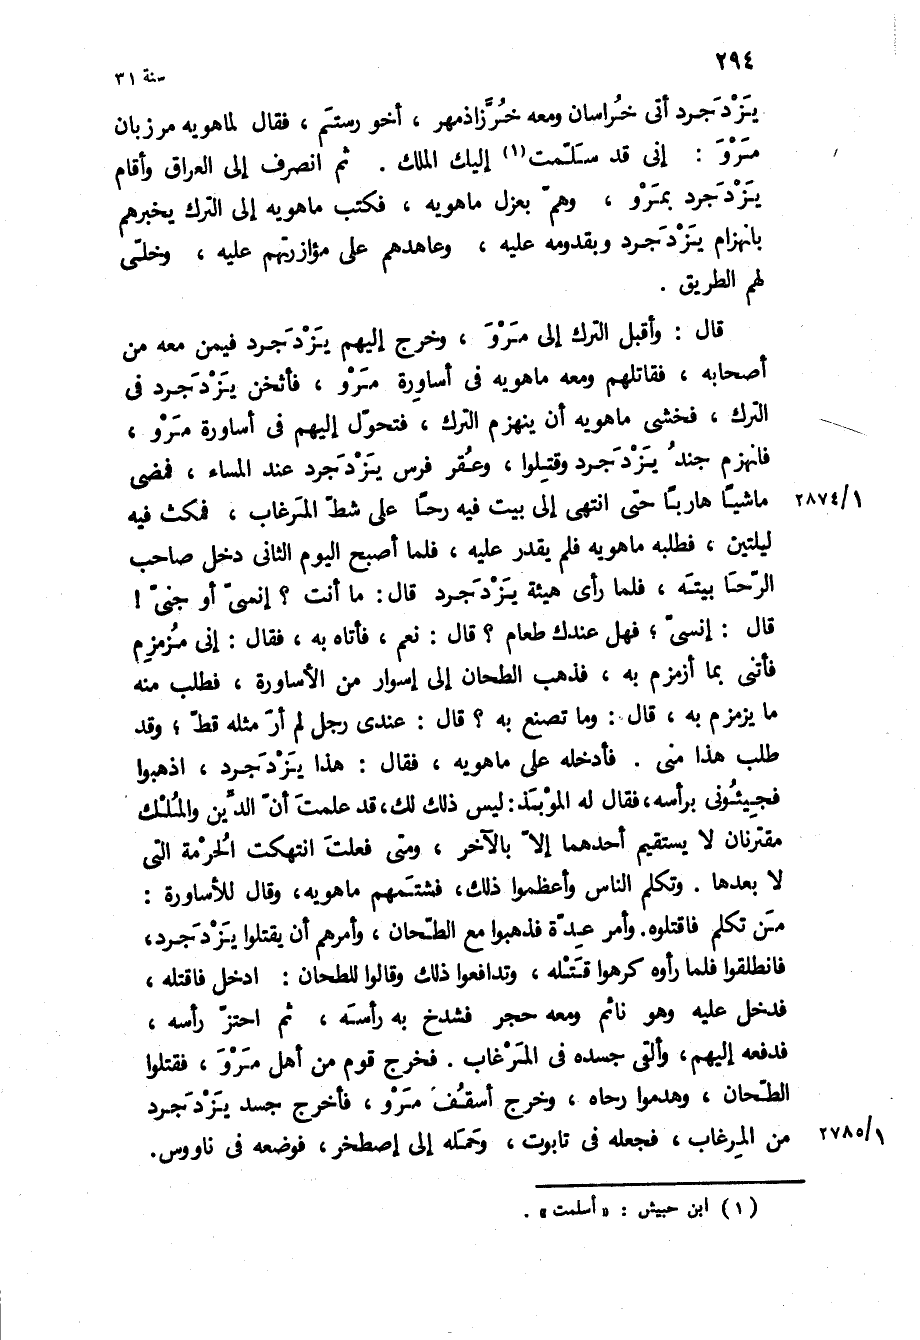 ٢٩٤
سنة ٣١
يَزْدَجرد أتى خُراسان ومعه خُرَّزاذمهر ، أخو رستَم ، فقال لماهويه مرزبان
مَرْوَ : إنى قد سَلَّمت(١) إليك الملك . ثم انصرف إلى العراق وأقام
يَزْدَجرد بمَرْو ، وهمّ بعزل ماهويه ، فكتب ماهويه إلى الترك يخبرهم
بانهزام يَزْدَجرد وبقدومه عليه ، وعاهدهم على مؤازرتهم عليه ، وخلّى
لهم الطريق .
قال : وأقبل الترك إلى مَرْوَ ، وخرج إليهم يَزْدَجرد فيمن معه من
أصحابه ، فقاتلهم ومعه ماهويه فى أساورة مَرْو ، فأثخن يَزْدَجرد فى
الترك ، فخشى ماهويه أن ينهزم الترك ، فتحوّل إليهم فى أساورة مَرْو ،
فانهزم جندُ يَزْدَجرد وقتِلوا ، وعُقر فرس يَزْدَجرد عند المساء ، فمضى
ماشيًا هاربًا حتى انتهى إلى بيت فيه رحًا على شطّ المَرغاب ، فمكث فيه
٢٨٧٤/١
ليلتين ، فطلبه ماهويه فلم يقدر عليه ، فلما أصبح اليوم الثانى دخل صاحب
الرّحَا بيتَه ، فلما رأى هيئة يَزْدَجرد قال: ما أنت ؟ إنسىّ أو جنىّ !
قال : إنسىّ ؛ فهل عندك طعام ؟ قال : نعم ، فأتاه به ، فقال : إنى مُزمزِم
فأتنى بما أزمزم به ، فذهب الطحان إلى إسوار من الأساورة ، فطلب منه
ما يزمزم به ، قال : وما تصنع به ؟ قال : عندى رجل لم أرَ مثله قطّ ؛ وقد
طلب هذا منى . فأدخله على ماهويه ، فقال : هذا يَزْدَجرد ، اذهبوا
فجيئُونى برأسه، فقال له الموْبَذ: ليس ذلك لك، قد علمتَ أنّ الدِّين والمُلْك
مقترنان لا يستقيم أحدهما إلاّ بالآخر ، ومتى فعلتَ انتهكت الحُرْمة التى
لا بعدها . وتكلم الناس وأعظموا ذلك، فشتَمهم ماهويه، وقال للأساورة :
مَن تكلم فاقتلوه. وأمر عِدّة فذهبوا مع الطّحان ، وأمرهم أن يقتلوا يَزْدَجرد،
فانطلقوا فلما رأوه كرهوا قَتْله ، وتدافعوا ذلك وقالوا للطحان : ادخل فاقتله ،
فدخل عليه وهو نائم ومعه حجر فشدخ به رأسَه ، ثم احتزّ رأسه ،
فدفعه إليهم، وألقى جسده فى المَرْغاب . فخرج قوم من أهل مَرْوَ ، فقتلوا
الطّحان ، وهدموا رحاه ، وخرج أسقُف مَرْو ، فأخرج جسد يَزْدَجرد
من المرغاب ، فجعله فى تابوت ، وحَمَله إلى إصطخر ، فوضعه فى ناووس.
٢٧٨٥/١
(١) ابن حبيش : « أسلمت » .